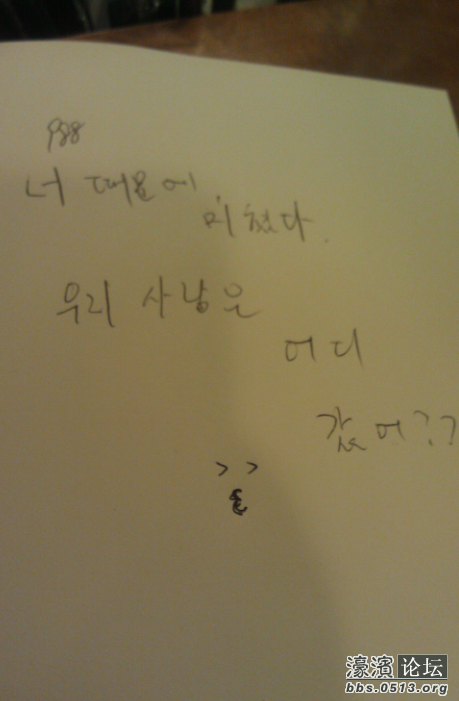 988
너 때문에
미쳤다.
우리 사랑은
어디
갔어??
> >
濠濱论坛
bbs.0513.org